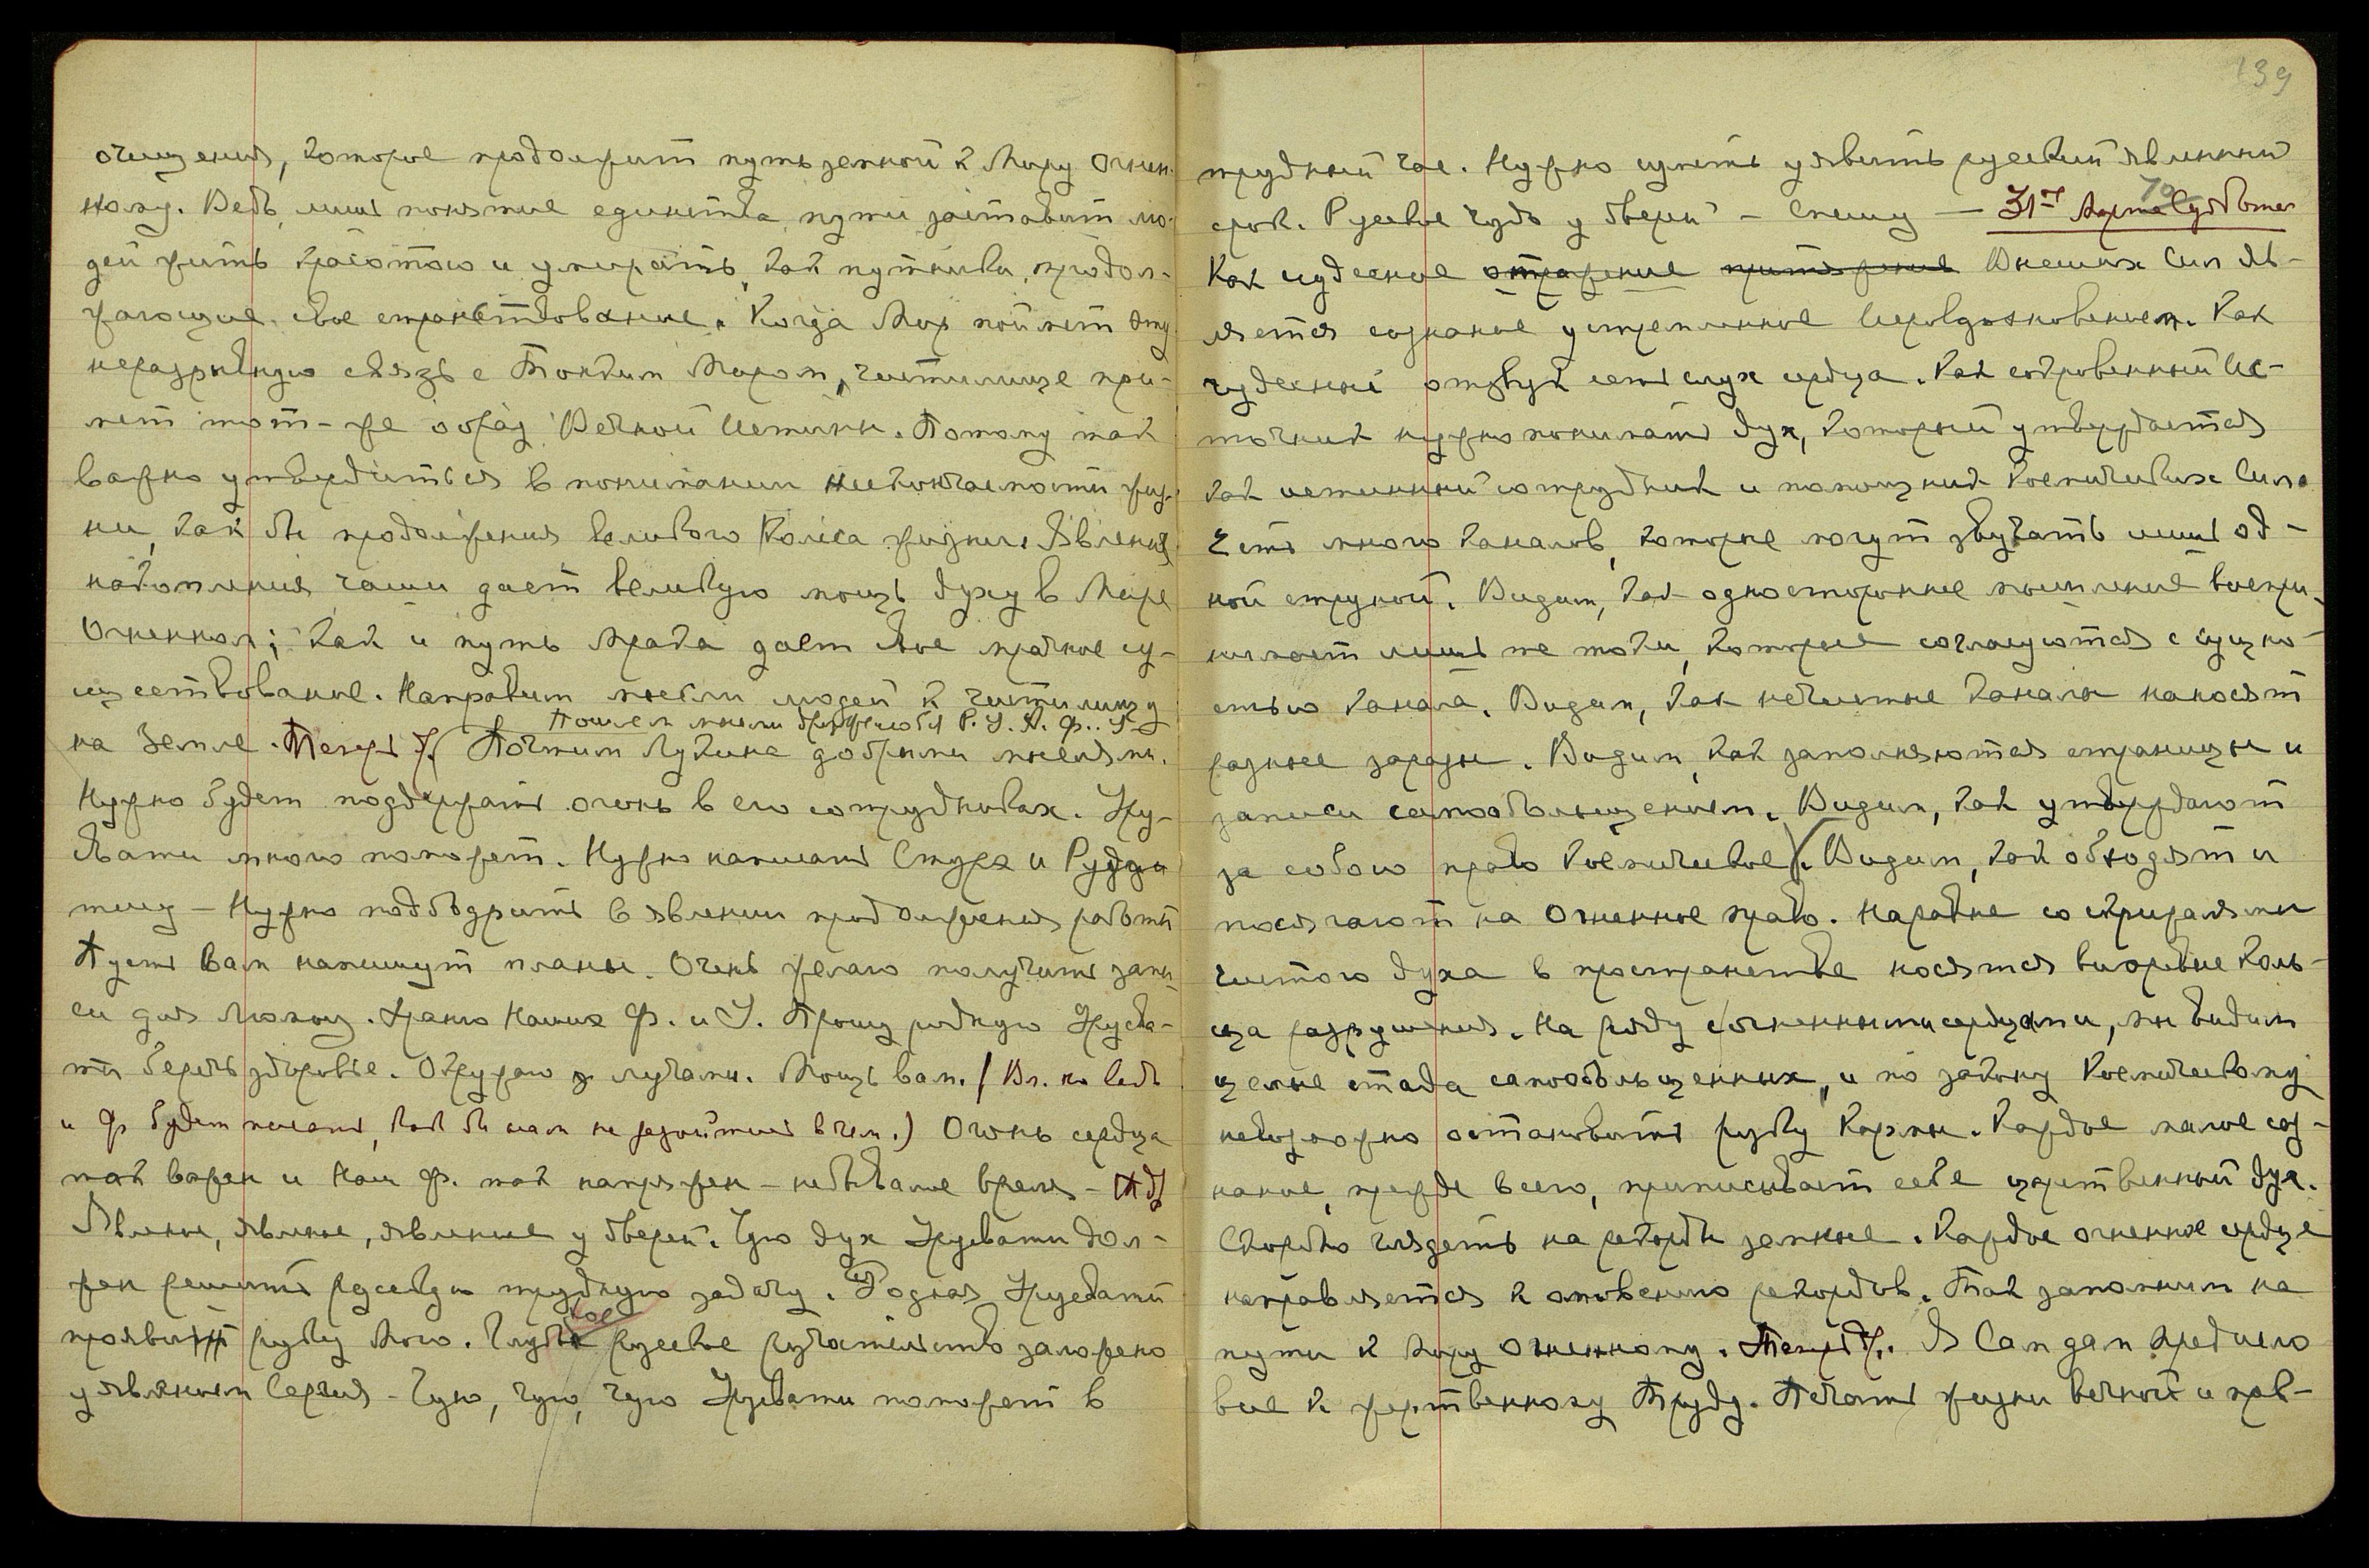 очищения, которое продолжит путь земной к Миру Огнен-
ному. Ведь лишь понятие единства пути заставит лю-
дей жить красотою и умирать, как путники, продол-
жающие свое странствование. Когда Мир поймет эту
неразрывную связь с Тонким Миром, чистилище при-
мет тот-же образ Вечной Истины. Потому так
важно утвердиться в понимании нескончаемости жиз-
ни, как бы продолжения великого Колеса жизни. Явление
накопления чаши дает великую мощь духу в Мире
Огненном; как и путь мрака дает свое мрачное су-
ществование. Направим мысли людей к чистилищу
Пошлем мысли дружелюбия Р. У. А. Ф..
на Земле. Теперь Почтим Лукина добрыми мыслями.
Нужно будет поддержать огонь в его сотрудниках. Уру-
свати много поможет. Нужно написать Стурэ и Рудзи
тису — Нужно подбодрить в явлении продолжения работы
Пусть вам напишут планы. Очень желаю получить запи
си для Мохощ. Храню Наших Ф. и У. Прошу родную Урусва-
ти беречь здоровье. Окружаю лучами. Мощь вам. (Вл. по ведь
и Ф будет писать, как бы нам не разойтись в чем.) Огонь сердца
так важен и Наш Ф. так напряжен — небывалое время —
Явление, явление, явление у дверей. Чую дух Урусвати дол-
жен решить русскую трудную задачу. Родная Урусвати
проявит руку Мою. Глубокое русское ручательство заложено
уявлением Сергия — Чую, чую, чую Урусвати поможет в
139
трудный час. Нужно суметь уявить русский явленный
срок. Русское чудо у дверей — Спешу — 31<sup>го</sup> Марта Суббота
Как чудесное отражение притяжение Высших Сил яв-
ляется сознание устремленное Иеровдохновением. Как
чудесный отзвук есть слух сердца. Как сокровенный Ис-
точник нужно понимать дух, который утверждается
как истинный сотрудник и помощник Космических Сил.
Есть много каналов, которые могут звучать лишь од-
ной струной. Видим, как одностороннее мышление воспри-
нимает лишь те токи, которые согласуются с сущно-
стью канала. Видим, как нечистые каналы наносят
разные заразы. Видим, как заполняются страницы и
записи самообольщением. Видим, как утверждают
за собою право Космическое). Видим, как обходят и
посягают на Огненное право. Наравне со скрижалями
чистого духа в пространстве носятся вихревые коль-
ца разрушения. На ряду с огненными сердцами, мы видим
целые стада самообольщенных, и по закону Космическому
невозможно остановить руку Кармы. Каждое малое соз-
нание, прежде всего, приписывает себе царственный дух.
Скорбно глядеть на рекорды земные. Каждое огненное сердце
направляется к омовению рекордов. Так запомним на
пути к Миру Огненному. Теперь др. Я Сам дам предисло
вие к жертвенному Труду. Печать жизни вечной и прав-